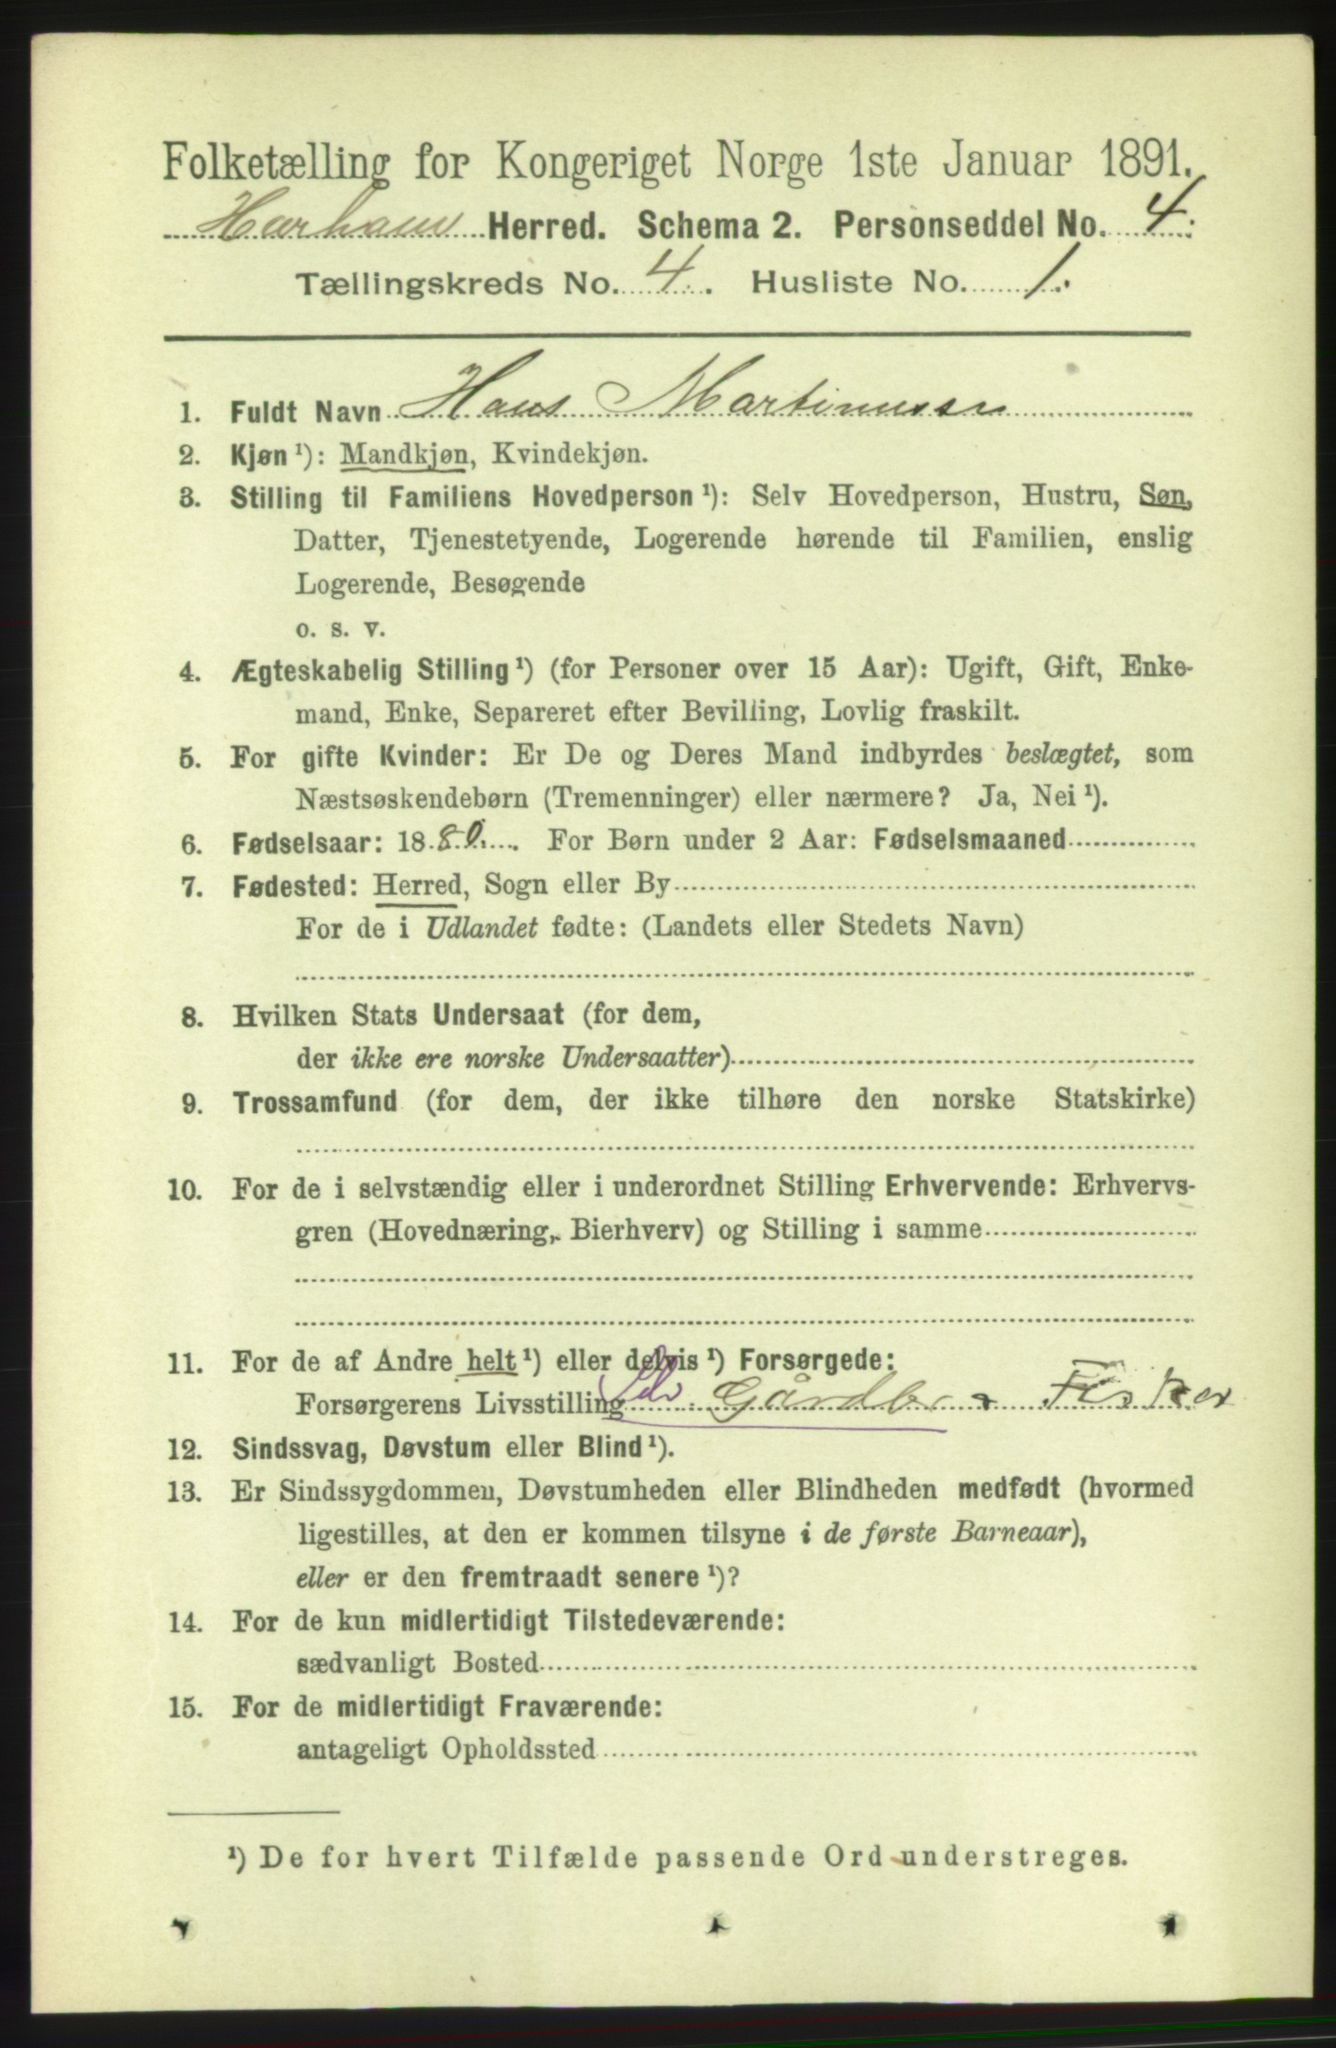 Folketælling for Kongeriget Norge 1ste Januar 1891.
Harham Herred. Schema 2. Personseddel No. 4.
Tællingskreds No. 4. Husliste No. 1.
1. Fuldt Navn Hans Martinussn
2. Kjøn ¹): Mandkjøn, Kvindekjøn.
3. Stilling til Familiens Hovedperson ¹): Selv Hovedperson, Hustru, Søn,
Datter, Tjenestetyende, Logerende hørende til Familien, enslig
Logerende, Besøgende
o. s. v.
4. Ægteskabelig Stilling ¹) (for Personer over 15 Aar): Ugift, Gift, Enke-
mand, Enke, Separeret efter Bevilling, Lovlig fraskilt.
5. For gifte Kvinder: Er De og Deres Mand indbyrdes beslægtet, som
Næstsøskendebørn (Tremenninger) eller nærmere? Ja, Nei ¹).
6. Fødselsaar: 1880. For Børn under 2 Aar: Fødselsmaaned
7. Fødested: Herred, Sogn eller By
For de i Udlandet fødte: (Landets eller Stedets Navn)
8. Hvilken Stats Undersaat (for dem,
der ikke ere norske Undersaatter)
9. Trossamfund (for dem, der ikke tilhøre den norske Statskirke)
10. For de i selvstændig eller i underordnet Stilling Erhvervende: Erhvervs-
gren (Hovednæring, Bierhverv) og Stilling i samme
11. For de af Andre helt ¹) eller delvis ¹) Forsørgede:
Forsørgerens Livsstilling Gårdbr Fisker
12. Sindssvag, Døvstum eller Blind ¹).
13. Er Sindssygdommen, Døvstumheden eller Blindheden medfødt (hvormed
ligestilles, at den er kommen tilsyne i de første Barneaar),
eller er den fremtraadt senere ¹)?
14. For de kun midlertidigt Tilstedeværende:
sædvanligt Bosted
15. For de midlertidigt Fraværende:
antageligt Opholdssted
¹) De for hvert Tilfælde passende Ord understreges.